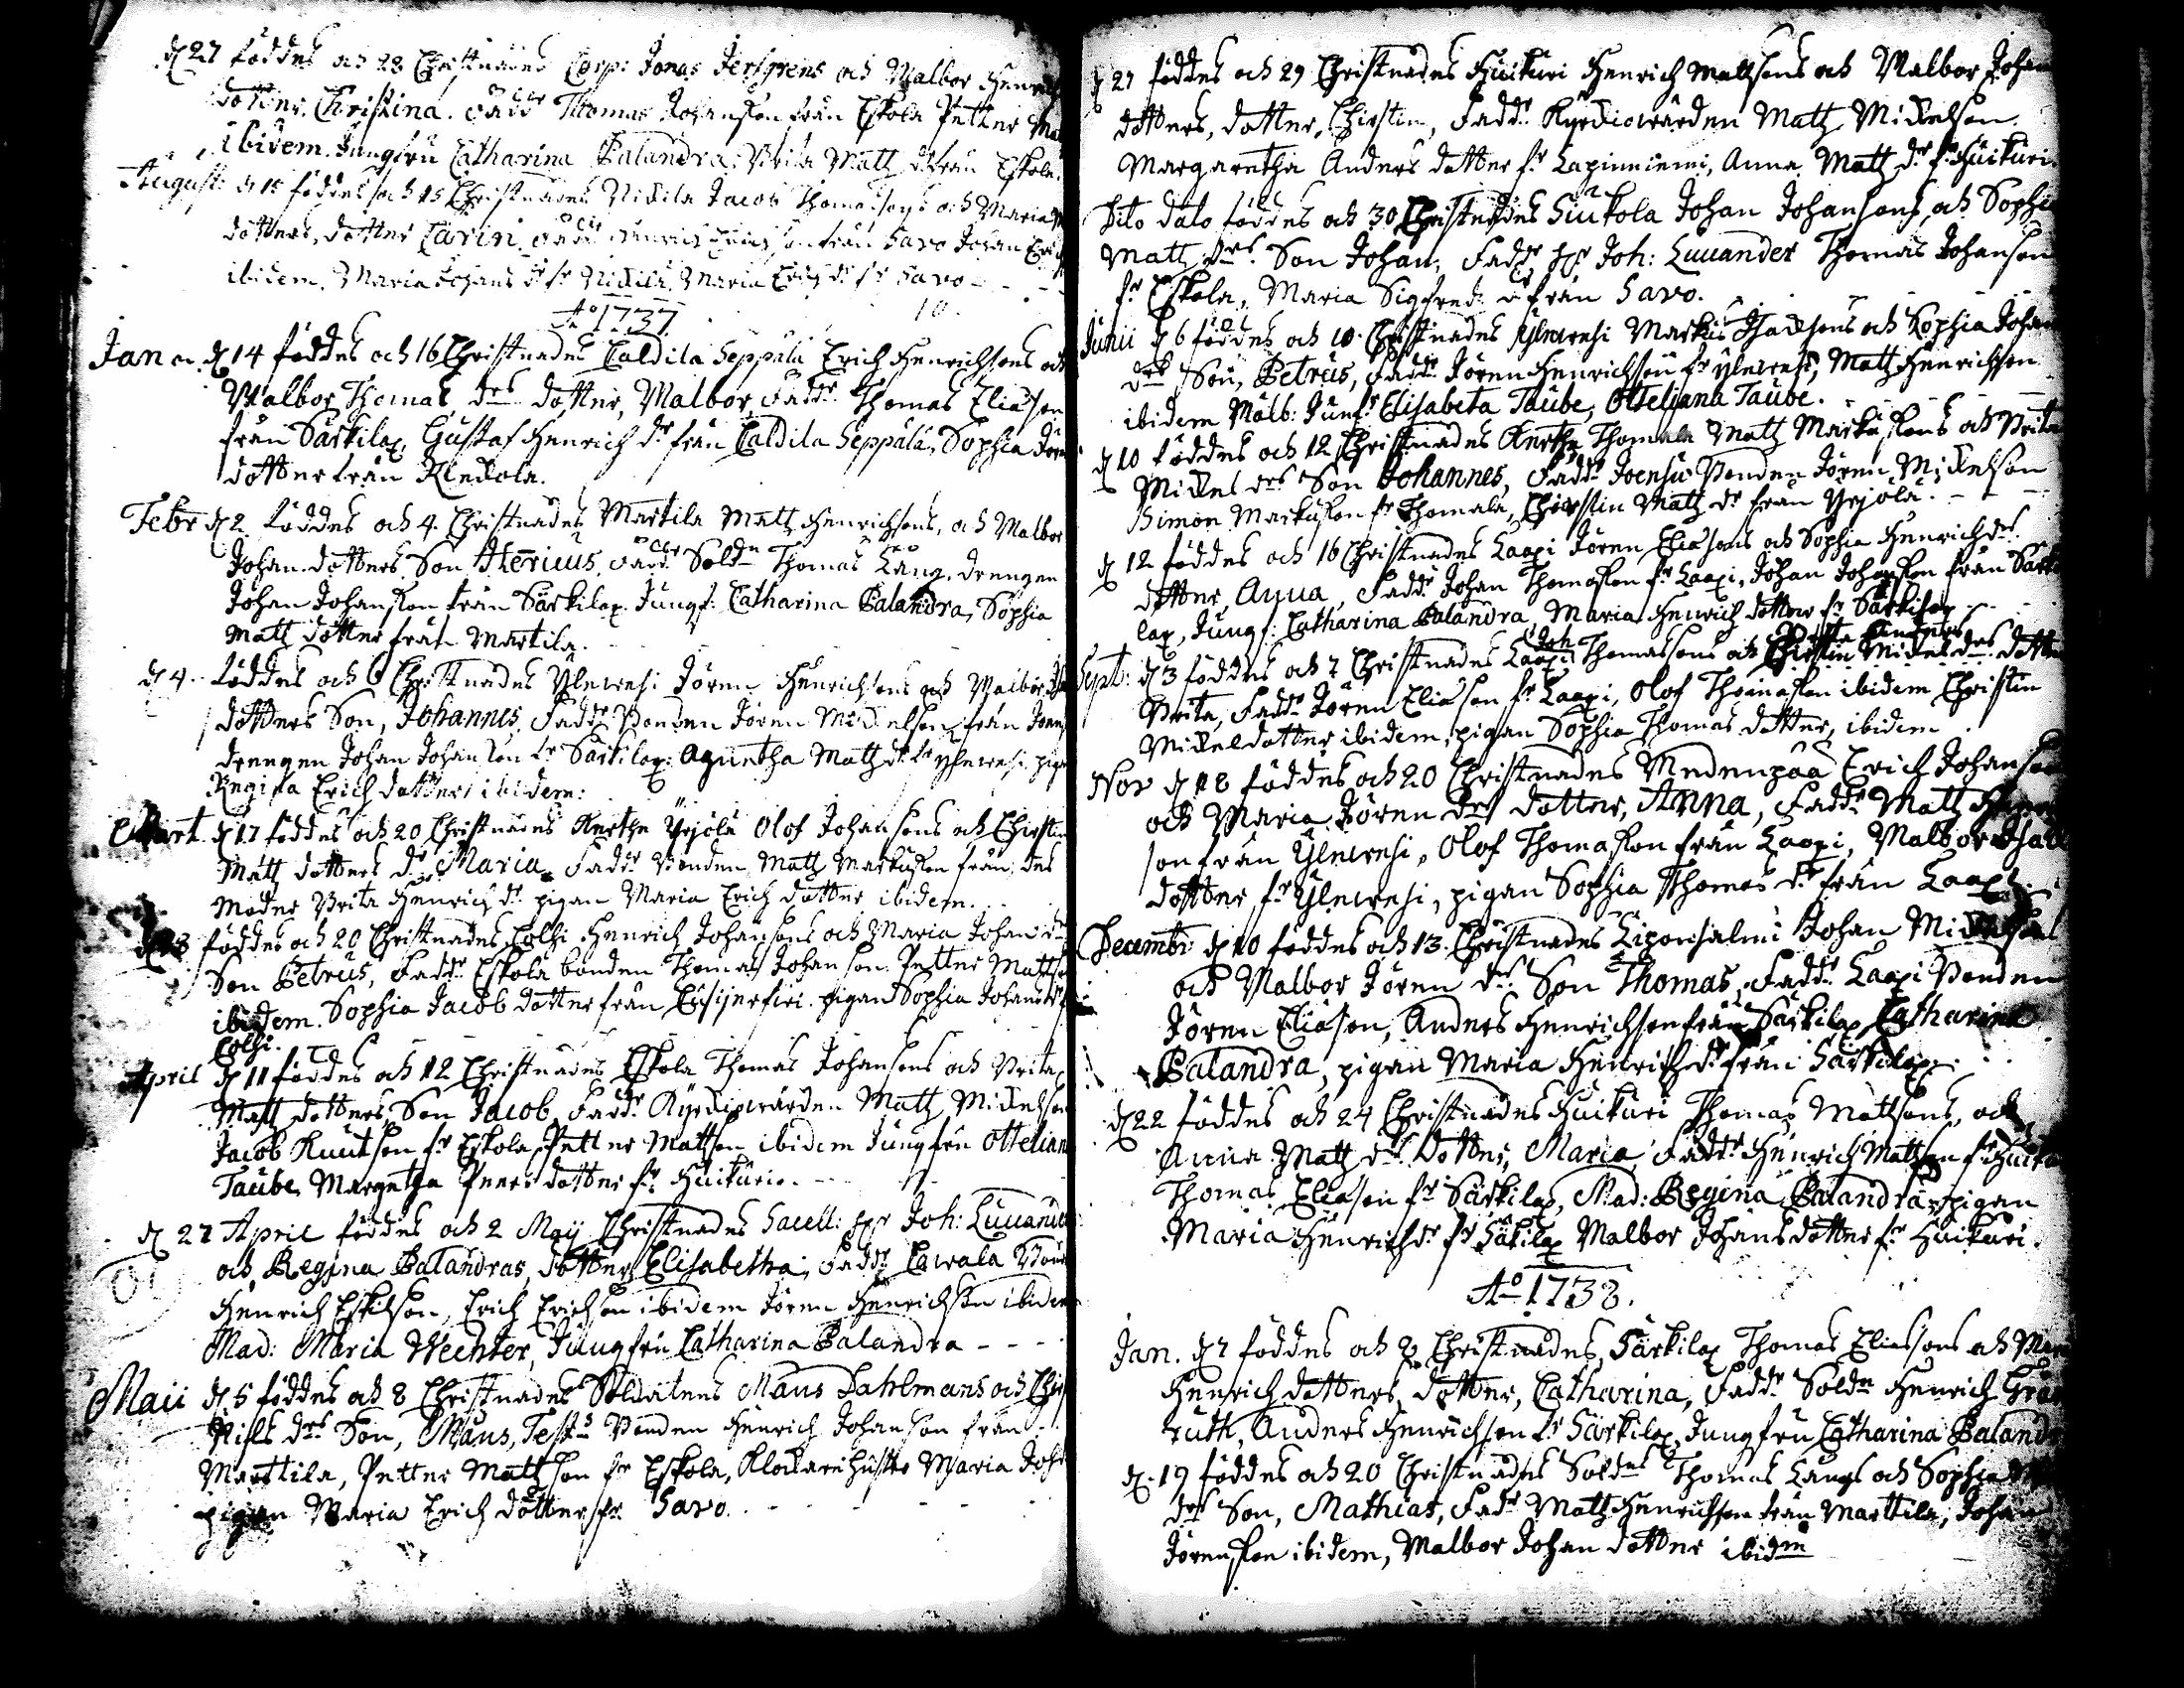 d 27 föddes och 28 Christnades Corp: Jonas Jerfgrens och Walbor Henrichs
dotter Christina. Fadd: Thomas Johansson från Eskola Petter Matts
ibidem. Jungfru Catharina Palandra. Brita Matz dr från Eskola.
August: d 15 föddes och 15 Christnades Nickila Jacob Thomasons och Maria
dotters, dotter Carin. Fadd: från Savo Johan Erich
ibidem. Maria Johans dr fr Nickila, Maria Erichs dr fr Savo
Ao 1737 10.
Jan d 14 föddes och 16 Christnades Caldila Seppälä Erich Henrichsons och
Walbor Thomas drs dotter, Malbor, Faddr Thomas Eliason
från Särkilax, Gustaf Henrich dr från Caldila Seppälä, Sophia Jören
dotter från Kleckola.
Febr d 2 föddes och 4. Christnades Martila Matz Henrichsons, och Malbor
Johan dotters Son Henricus, Faddr Soldn Thomas Lång, drengen
Johan Johansson från Särkilax. Jungf: Catharina Palandra, Sophia
Matz dotter från Martila.
d 4. föddes och 6 Christnades Ylewesi Jören Henrichsons och Walbor
dotters Son, Johannes, Faddr Bonden Jören Mickelson från Joens
drengen Johan Johanson fr Särkilax: Agnetha Matz dr fr Ylewesi piga
Regina Erich dotter ibidem:
Mart. d 17 föddes och 20 Christnades Kerthe Yrjölä Olof Johansons och Chirstin
Matz dotters dr Maria. Faddr Bonden Matz Markuson från, des
Moder Brita Henrich dr pigan Maria Erich dotter ibidem.
föddes och 20 Christnades Colhi Henrich Johansons och Maria Johan drs
Son Petrus, Faddr Eskola bonden Thomas Johanson Petter Mattson
ibidem. Sophia Jacob dotter från pigan Sophia Johans dr fr
Colhi.
April d 11 föddes och 12 Christnades Eskola Thomas Johansons och Brita
Matz dotters Son Jacob, Faddr Kyrckiowärden Matz Mickelson
Jacob Knutson fr Eskola, Petter Mattson ibidem Jungfru Otteliana
Taube, Margetha Peers dotter fr Huikuri.
d 27 April föddes och 2 Maij Christnades Sacell: Hr Joh: Luuanders
och Regina Palandras, dotter Elisabetha, Faddr Lawala Bonden
Henrich Eskilson, Erich Erichson ibidem Jören Henrichson ibidem
Mad: Maria Wechter, Jungfru Catharina Palandra
Maii d 5 föddes och 8 Christnades Soldatens Måns Dahlmans och Chir
Nils drs Son, Måns, Tests Bonden Henrich Johanson från
Marttila, Petter Mattson fr Eskola, Klockarehustro Maria Joh
pigan Maria Erich dotter fr Savo.
d 27 föddes och 29 Christnades Huikuri Henrich Mattsons och Malbor Johan
dotters, dotter, Chirstin, Faddr Kyrckiowärden Matz Mickelson.
Margaretha Anders dotter fr Lapinniemi, Anna Matz dr fr Huikuri.
Dito dato föddes och 30 Christnades Siukola Johan Johansons, och Sophia
Matz drs Son Johan, Faddr Hr Joh: Luuander Thomas Johanson
fr Eskola, Maria Sigfreds dr från Savo.
Junii d 6 föddes och 10. Christnades Ylewesi Markus Isacksons och Sophia Johan
drs Son, Petrus, Faddr Jören Henrichson fr Ylewesi, Matz Henrichson
ibidem Wälb: Junfr Elisabeta Taube, Otteljana Taube.
d 10 föddes och 12 Christnades Kerthe Thomala Matz Markusons och Brita
Mickel drs Son Johannes, Faddr Joensu Bonden Jören Mickelson
Simon Markuson fr Thomala, Chirstin Matz dr från Yrjölä.
d 12 föddes och 16 Christnades Laaxi Jören Eliasons och Sophia Henrich drs
dotter Anna, Faddr Johan Thomason fr Laaxi, Johan Johanson från Särki
lax, Jungf: Catharina Palandra, Maria Henrich dotter fr Särkilax
Joh
Sept: d 3 föddes och 7 Christnades Laaxi Thomassons och Chirstin Mickel drs dotter
Brita, Faddr Jören Eliason fr Laaxi, Olof Thomason ibidem Chirstin
Mickeldotter ibidem, pigan Sophia Thomas dotter, ibidem
Nov d 18 föddes och 20 Christnades Medenpää Erich Johansons
och Maria Jören drs dotter, Anna, Faddr Matz Henrich
son från Ylewesi, Olof Thomason från Laaxi, Malbor Isack
dotter fr Ylewesi, pigan Sophia Thomas dr från Laaxi.
Decembr d 10 föddes och 13. Christnades Liponsalmi Johan Mickelsons
och Malbor Jören drs Son Thomas, Faddr Laaxi Bonden
Jören Eliason, Anders Henrichson från Särkilax, Catharina
Palandra, pigan Maria Henrich dr från Särkilax.
d 22 föddes och 24 Christnades Huikuri Thomas Mattsons, och
Anna Matz drs dotter, Maria, Faddr Henrich Mattson fr Huiku
Thomas Eliason fr Särkilax, Mad: Regina Palandra, pigan
Maria Henrich dr fr Särkilax Malbor Johans dotter fr Huikuri.
Ao 1738.
Jan. d 7 föddes och 8 Christnades, Särkilax Thomas Eliassons och Mar
Henrich dotters, dotter, Catharina, Faddr Soldn Henrich
ruth, Anders Henrichson fr Särkilax, Jungfru Catharina Palandr
d 19 föddes och 20 Christnades Soldns Thomas Långs och Sophia
drs Son, Mathias, Faddr Matz Henrichson från Marttila, Johan
Jörensson ibidem, Malbor Johan dotter ibidm